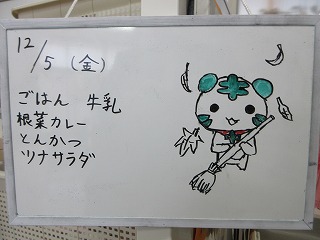 12/5 (金)
ごはん 牛乳
根菜カレー
とんかつ
ツナサラダ